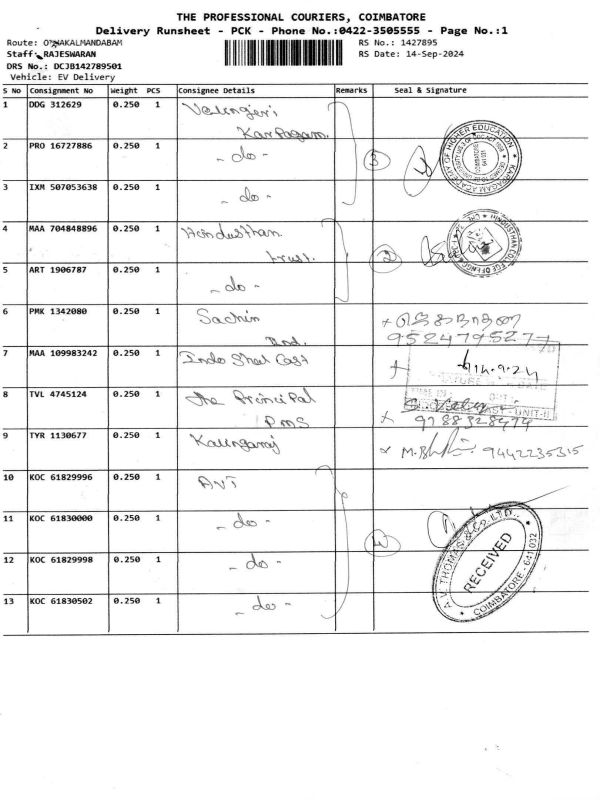 THE PROFESSIONAL COURIERS, COIMBATORE
Delivery Runsheet - PCK - Phone No.:0422-3505555 - Page No.:1
Route: OTHAKALMANDABAM
RS No.: 1427895
Staff: RAJESWARAN
RS Date: 14-Sep-2024
DRS No.: DCJB142789501
Vehicle: EV Delivery
S No Consignment No Weight PCS Consignee Details Remarks Seal & Signature
1 DDG 312629 0.250 1
Karpagam.
2 PRO 16727886 0.250 1 - do -
3 IXM 507053638 0.250 1 - do -
3
KARPAGAM ACADEMY OF HIGHER EDUCATION
COIMBATORE
641 021
4 MAA 704848896 0.250 1 Hindusthan
trust.
5 ART 1906787 0.250 1 - do -
2
HINDUSTHAN COLLEGE OF ENGG
6 PMK 1342080 0.250 1 Sachin
Ind.
9524795274
7 MAA 109983242 0.250 1 Indo Shell Cast
14.9.24
8 TVL 4745124 0.250 1 The Principal
PMS
UNIT-II
9788328474
9 TYR 1130677 0.250 1 Kalingaraj
9442235315
10 KOC 61829996 0.250 1 AVT
11 KOC 61830000 0.250 1 - do -
12 KOC 61829998 0.250 1 - do -
13 KOC 61830502 0.250 1 - do -
4
A.V. THOMAS & Co. LTD.
RECEIVED
COIMBATORE - 641 032